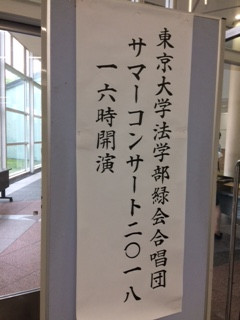 東京大学法学部緑会合唱団
サマーコンサート二〇一八
一六時開演